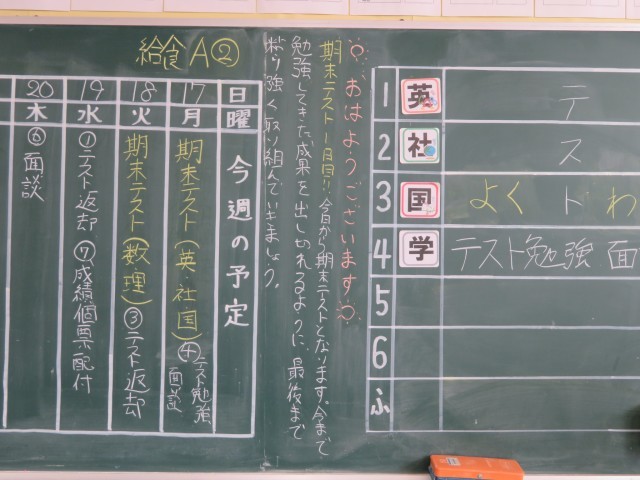 給食A②
おはようございます
期末テスト1日目!!今日から期末テストとなります。今まで
勉強してきた成果を出し切れるように、最後まで
粘り強く取り組んでいきましょう。
日 曜 今週の予定
17 月 期末テスト(英・社・国)④テスト勉強 面談
18 火 期末テスト(数・理)③テスト返却
19 水 ①テスト返却 ⑦成績個票配付
20 木 ⑥面談
1 英 テ
2 社 ス
3 国 よく ト わ
4 学 テスト勉強 面
5
6
ふ